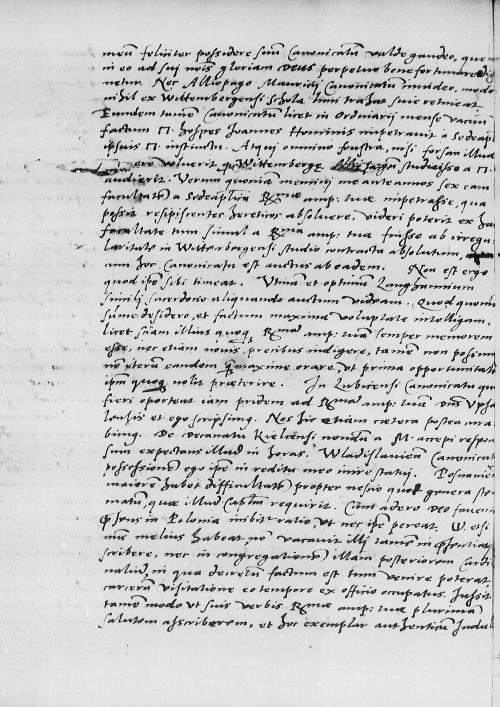 meũ feliciter possidere suũ Canonicatũ valde gaudeo, quem
in eo ad sui nois gloriam Deus perpetuo bene fortunare dig
netur. Nec Allopago Mauritij Canonicatũ invideo, modo
nihil ex Wittembergensi schola secum trahat sive retineat.
Eundem tamẽ Canonicatũ licet in Ordinarij mense varium
factum M. hospes Ioannes Hominis impetravit a Sede apl
ipsius M. instinctu. Atqui omnino frustra, nisi forsan illud
voluerit Wittemberge studuisse a M.
audierit. Verum quoniã memini me anteannos sex eam
facultatẽ a Sede aplica Rmae amp: tuae impetrasse, qua
possit resipiscentes hereticos absolvere, videri poterit ex hac
facultate tum simul a Rma amp: tua fuisse ab irregu
laritate in Wittenbergensi studio contracta absolutum,
cum hoc Canonicatu est auctus ab eadem. Non est ergo
quod ipse sibi timeat. Utinã et optimũ Langhannium
simili sacerdotio aliquando auctum videam. Quod quoniã
summe desidero, et factum maxima voluptate intelligam,
licet sciam illius quoq Rmam amp: tuã semper memorem
esse, nec etiam nomis precibus indigere, tamẽ non possum
nõ iterum eandem maxime orare, ut prima opportunitate
ipm quoq nolit praeterire. In Lubucensi Canonicatu quid
fieri oporteat iam pridem ad Rmam amp: tuã Dns Upsa
lensis et ego scripsimus. Nos hic etiam caetera postea cura
bimus. De Decanatu Kielcensi nondũ a M. accepi respon
sum expectans illud in horas. Wladislavien Canonicatus
possessionẽ ego ipse in reditu meo inire statui. Posnanien
maiorẽ habet difficultatem propter nescio quod genera ste
matum, quae illud Captlm requirit. Cum adero deo favente
psens in Polonia inibit ratio, ut nec ipse pereat. W. etsi
nunc melius habeat nõ vacavit illi tamen in pesentia
scribere, nec in congregatione illam posteriorem Cardi
nalium, in qua decretum factum est tum venire poterat
carcerum visitatione eo tempore ex officio occupatus. Iussit
tamẽ modo ut suis verbis Rmae amp: tuae plurimam
salutem ascriberem, et hoc exemplar authenticum Indul